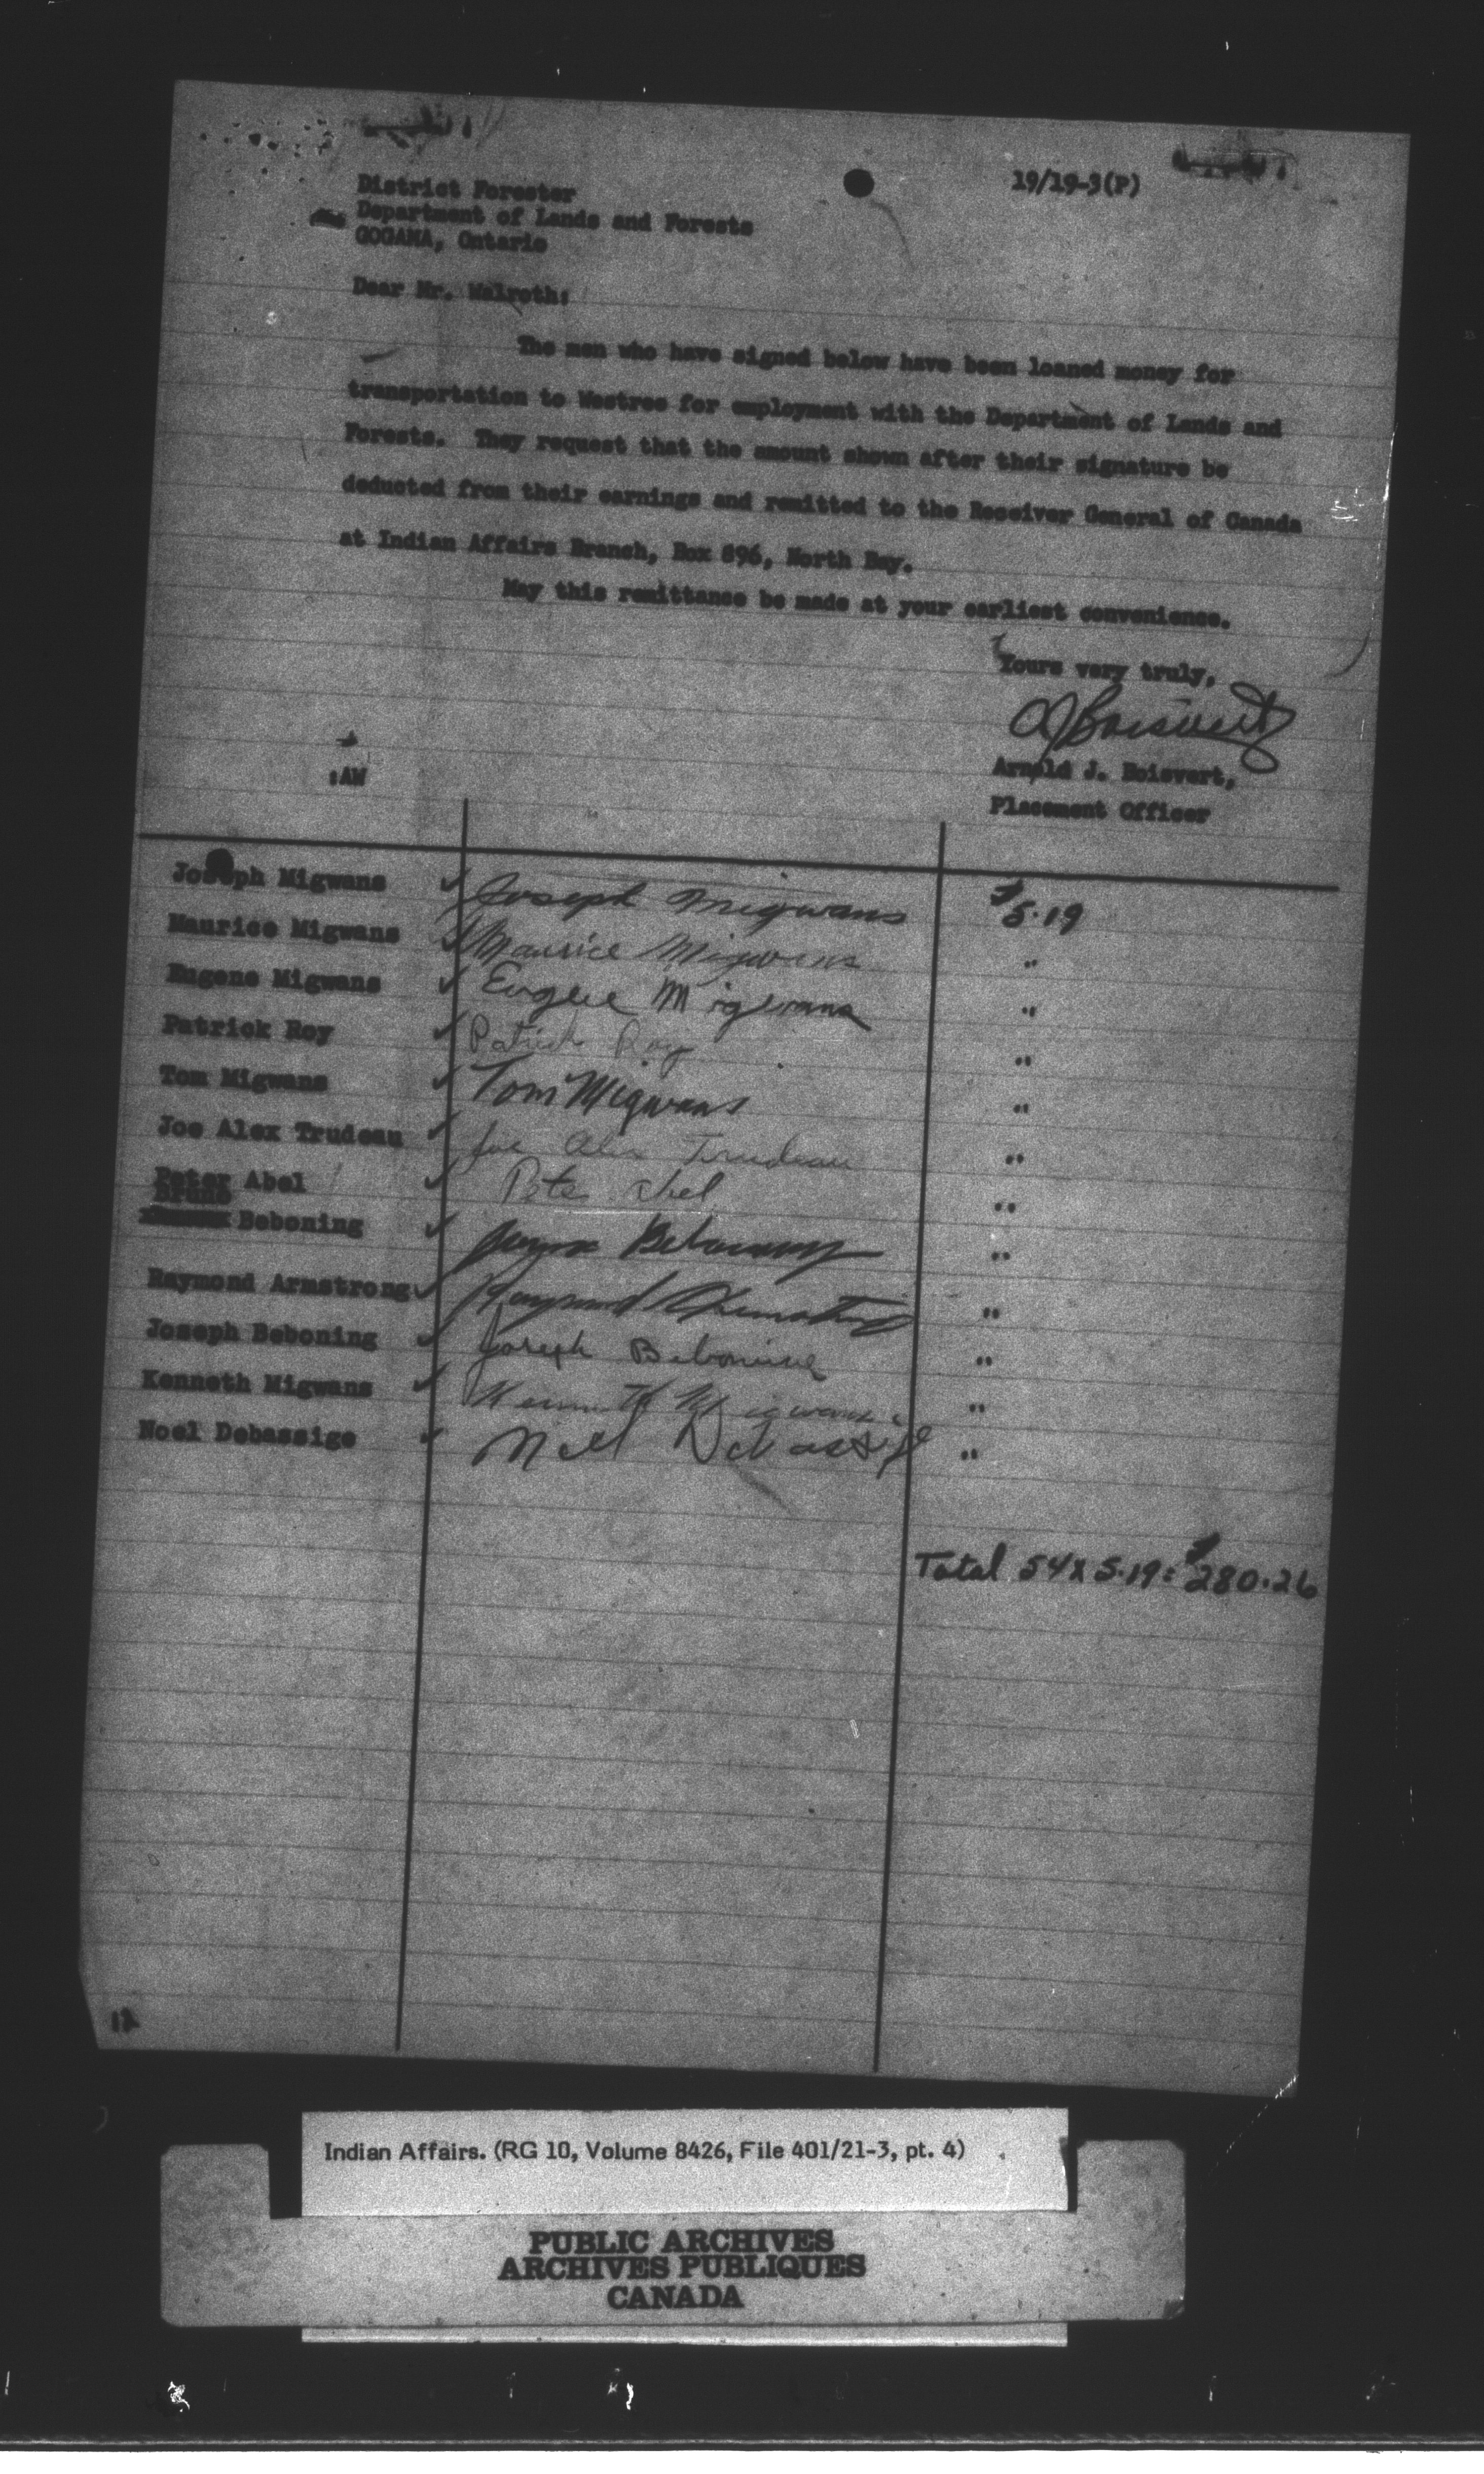 19/19-3(P)
District Forester
Department of Lands and Forests
GOGAMA, Ontario
Dear Mr. Walroth:
The men who have signed below have been loaned money for
transportation to Westree for employment with the Department of Lands and
Forests. They request that the amount shown after their signature be
deducted from their earnings and remitted to the Receiver General of Canada
at Indian Affairs Branch, Box 896, North Bay.
May this remittance be made at your earliest convenience.
Yours very truly,
AJBoisvert
Arnold J. Boisvert,
Placement Officer
:AW
Joseph Migwans ✓ Joseph Migwans $5.19
Maurice Migwans ✓ Maurice Migwans "
Eugene Migwans ✓ Eugene Migwans "
Patrick Roy ✓ Patrick Roy "
Tom Migwans ✓ Tom Migwans "
Joe Alex Trudeau ✓ Joe Alex Trudeau "
Peter Abel ✓ Pete Abel "
Bruno
Beboning ✓ Beboning "
Raymond Armstrong ✓ Raymond Armstrong "
Joseph Beboning ✓ Joseph Beboning "
Kenneth Migwans ✓ Kenneth Migwans "
Noel Debassige ✓ Noel Debassige "
Total 54 x 5.19 = $280.26
12
Indian Affairs. (RG 10, Volume 8426, File 401/21-3, pt. 4)
PUBLIC ARCHIVES
ARCHIVES PUBLIQUES
CANADA